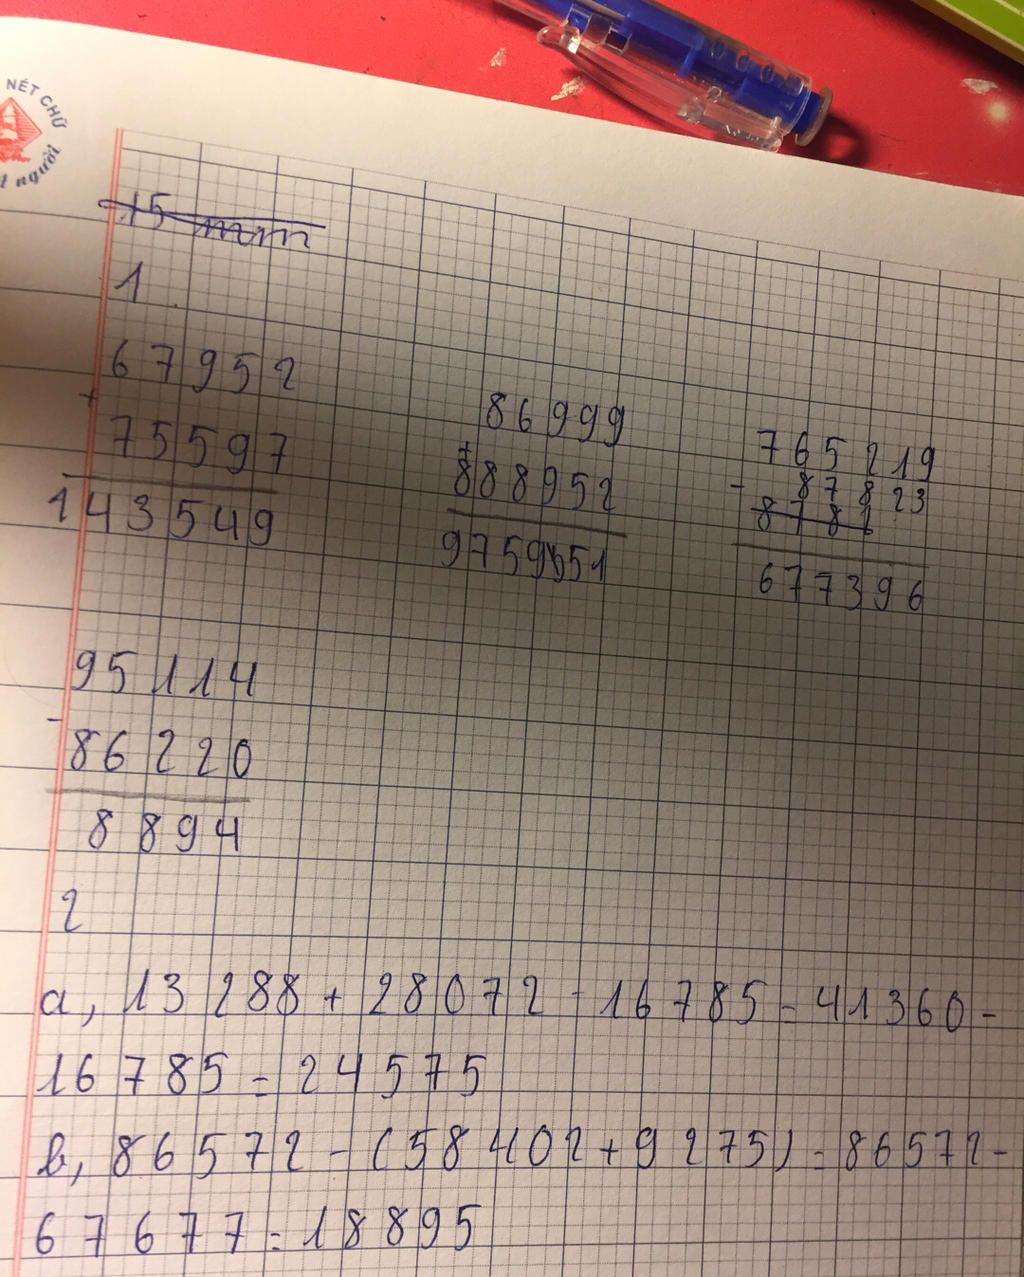 NÉT CHỮ
người
15 min
1
67952
+
75597
143549
86999
+
888952
975951
765219
-
87823
8781
677396
95114
-
86220
8894
2
a, 13 288 + 28072 - 16785 = 41360 -
16 785 = 24575
b, 86572 - (58 402 + 9 275) = 86572 -
67677 = 18895